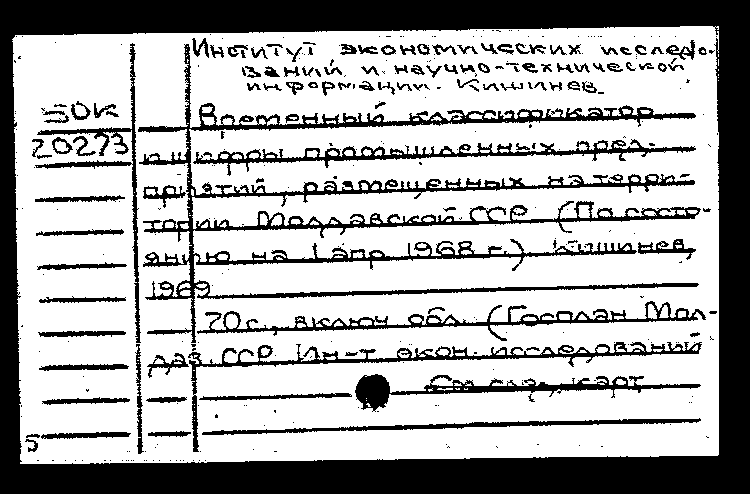 Институт экономических исследо-
ваний и научно-технической
информации. Кишинев.
30К
20273
Временный классификатор
и шифры промышленных пред-
приятий, размещенных на терри-
тории Молдавской ССР (По состо-
янию на 1 апр. 1968 г.) Кишинев,
1969
70с., включ. обл. (Госплан Мол-
дав. ССР Ин-т экон. исследований
См. след. карт.
5